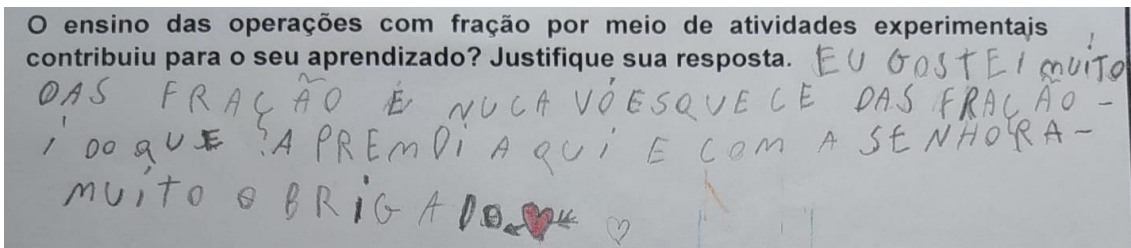 O ensino das operações com fração por meio de atividades experimentais
contribuiu para o seu aprendizado? Justifique sua resposta. EU GOSTEI MUITO
DAS FRAÇÃO É NUCA VÓ ESQUECE DAS FRAÇÃO -
I DO QUE APREMDI AQUI E COM A SENHORA -
MUITO OBRIGADO